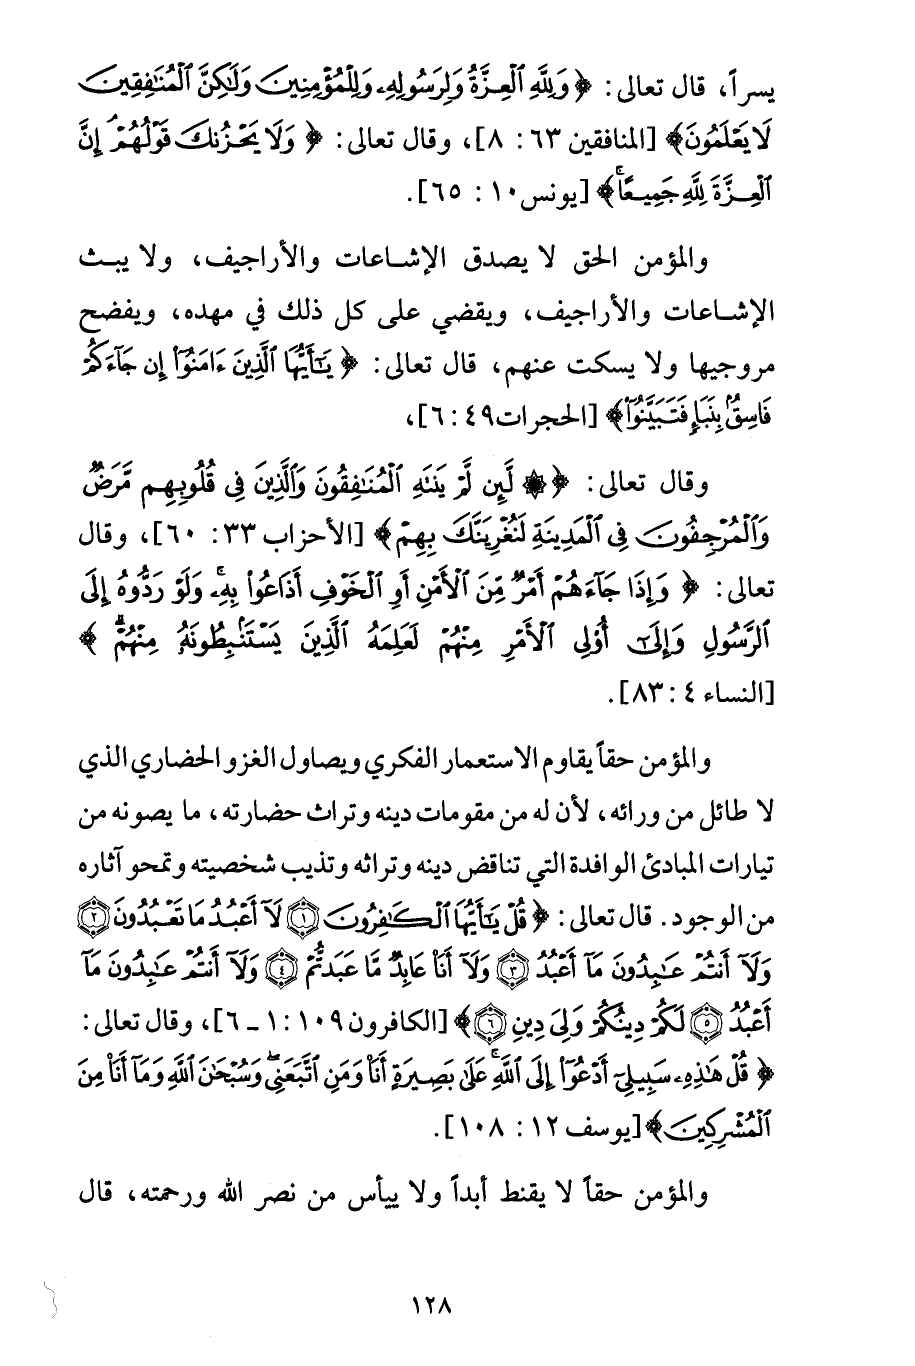 يسراً، قال تعالى: ﴿وَلِلَّهِ الْعِزَّةُ وَلِرَسُولِهِ وَلِلْمُؤْمِنِينَ وَلَٰكِنَّ الْمُنَافِقِينَ
لَا يَعْلَمُونَ﴾ [المنافقين ٦٣ : ٨]، وقال تعالى: ﴿وَلَا يَحْزُنكَ قَوْلُهُمْ ۘ إِنَّ
الْعِزَّةَ لِلَّهِ جَمِيعًا ۚ﴾ [يونس ١٠ : ٦٥].
والمؤمن الحق لا يصدق الإشاعات والأراجيف، ولا يبث
الإشاعات والأراجيف، ويقضي على كل ذلك في مهده، ويفضح
مروجيها ولا يسكت عنهم، قال تعالى: ﴿يَٰٓأَيُّهَا الَّذِينَ ءَامَنُوٓا۟ إِن جَآءَكُمْ
فَاسِقٌۢ بِنَبَإٍ فَتَبَيَّنُوٓا۟﴾ [الحجرات ٤٩ : ٦]،
وقال تعالى: ﴿۞ لَّئِن لَّمْ يَنتَهِ الْمُنَٰفِقُونَ وَالَّذِينَ فِى قُلُوبِهِم مَّرَضٌ
وَالْمُرْجِفُونَ فِى الْمَدِينَةِ لَنُغْرِيَنَّكَ بِهِمْ﴾ [الأحزاب ٣٣ : ٦٠]، وقال
تعالى: ﴿وَإِذَا جَآءَهُمْ أَمْرٌ مِّنَ الْأَمْنِ أَوِ الْخَوْفِ أَذَاعُوا۟ بِهِۦ ۖ وَلَوْ رَدُّوهُ إِلَى
الرَّسُولِ وَإِلَىٰٓ أُو۟لِى الْأَمْرِ مِنْهُمْ لَعَلِمَهُ الَّذِينَ يَسْتَنۢبِطُونَهُۥ مِنْهُمْ ۗ﴾
[النساء ٤ : ٨٣].
والمؤمن حقاً يقاوم الاستعمار الفكري ويصاول الغزو الحضاري الذي
لا طائل من ورائه، لأن له من مقومات دينه وتراث حضارته، ما يصونه من
تيارات المبادئ الوافدة التي تناقض دينه وتراثه وتذيب شخصيته وتمحو آثاره
من الوجود. قال تعالى: ﴿قُلْ يَٰٓأَيُّهَا الْكَٰفِرُونَ ۝١ لَآ أَعْبُدُ مَا تَعْبُدُونَ ۝٢
وَلَآ أَنتُمْ عَٰبِدُونَ مَآ أَعْبُدُ ۝٣ وَلَآ أَنَا۠ عَابِدٌ مَّا عَبَدتُّمْ ۝٤ وَلَآ أَنتُمْ عَٰبِدُونَ مَآ
أَعْبُدُ ۝٥ لَكُمْ دِينُكُمْ وَلِىَ دِينِ ۝٦﴾ [الكافرون ١٠٩ : ١ - ٦]، وقال تعالى:
﴿قُلْ هَٰذِهِۦ سَبِيلِىٓ أَدْعُوٓا۟ إِلَى اللَّهِ ۚ عَلَىٰ بَصِيرَةٍ أَنَا۠ وَمَنِ اتَّبَعَنِى ۖ وَسُبْحَٰنَ اللَّهِ وَمَآ أَنَا۠ مِنَ
الْمُشْرِكِينَ﴾ [يوسف ١٢ : ١٠٨].
والمؤمن حقاً لا يقنط أبداً ولا ييأس من نصر الله ورحمته، قال
١٢٨